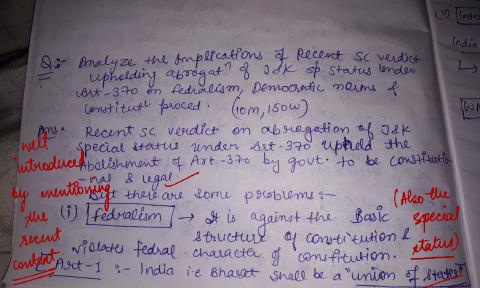 Q:- Analyze the Implications of Recent SC verdict
upholding abrogatⁿ of J&K sp. status under
Art-370 on Federalism, Democratic norms &
constitutⁿl proced. (10m, 150W)
Ans. Recent SC verdict on abrogation of J&K
special status under Art-370 upheld the
Abolishment of Art-370 by govt. to be constitutio
-nal & legal.
But there are some problems:-
(i) Federalism → It is against the Basic
structure of constitution &
violates fedral character of constitution.
Art-1 :- India i.e Bharat shall be a "union of states"
well
introduced
by mentioning
the
recent
context
(Also the
special
status)
(v) Inter
India